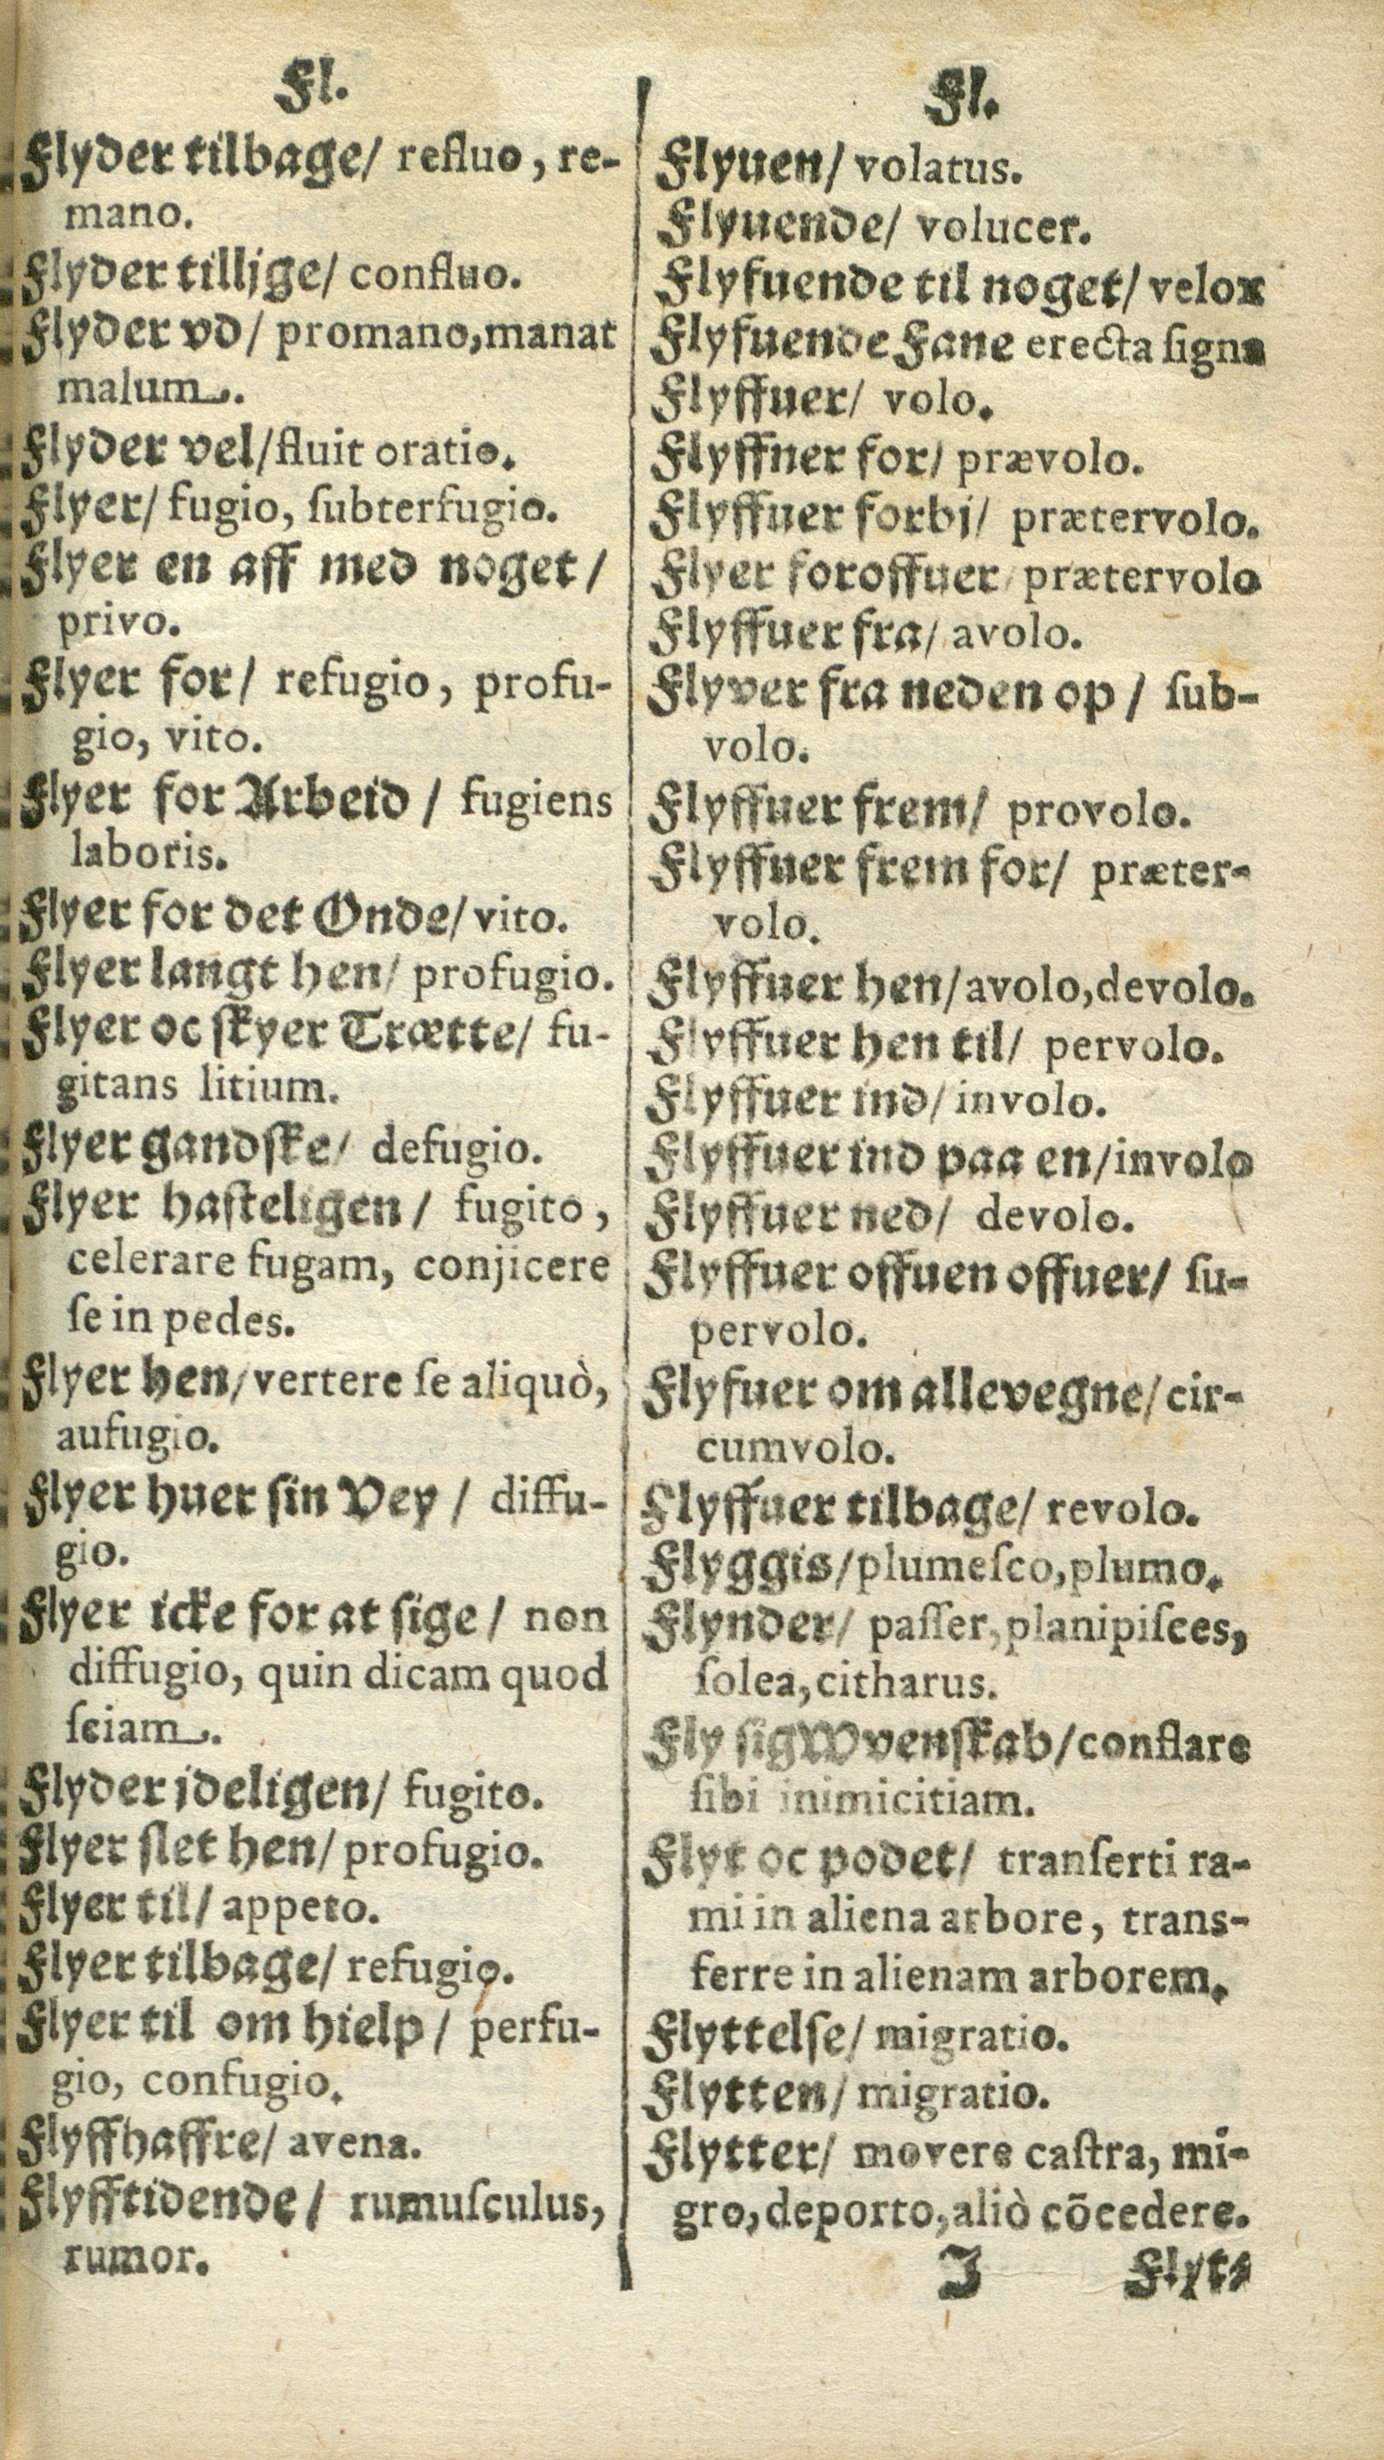 Fl.
Flyder tilbage/ refluo, re-
mano.
Flyder tillige/ confluo.
Flyder vd/ promano, manat
malum.
Flyder vel/ fluit oratio.
Flyer/ fugio, ſubterfugio.
Flyer en aff med noget/
privo.
Flyer for/ refugio, profu-
gio, vito.
Flyer for Arbeid/ fugiens
laboris.
Flyer for det Onde/ vito.
Flyer langt hen/ profugio.
Flyer oc ſkyer Trætte/ fu-
gitans litium.
Flyer gandſke/ defugio.
Flyer haſteligen/ fugito,
celerare fugam, conjicere
ſe in pedes.
Flyer hen/ vertere ſe aliquò,
aufugio.
Flyer huer ſin Vey/ diffu-
gio.
Flyer icke for at ſige/ non
diffugio, quin dicam quod
ſciam.
Flyder jdeligen/ fugito.
Flyer ſlet hen/ profugio.
Flyer til/ appeto.
Flyer tilbage/ refugio.
Flyer til om hielp/ perfu-
gio, confugio.
Flyffhaffre/ avena.
Flyfftidende/ rumuſculus,
rumor.
Fl.
Flyuen/ volatus.
Flyuende/ volucer.
Flyfuende til noget/ velox
Flyfuende Fane erecta ſigna
Flyffuer/ volo.
Flyffner for/ prævolo.
Flyffuer forbj/ prætervolo.
Flyer foroffuer/ prætervolo
Flyffuer fra/ avolo.
Flyver fra neden op/ ſub-
volo.
Flyffuer frem/ provolo.
Flyffuer frem for/ præter-
volo.
Flyffuer hen/ avolo, devolo.
Flyffuer hen til/ pervolo.
Flyffuer ind/ involo.
Flyffuer ind paa en/ involo
Flyffuer ned/ devolo.
Flyffuer offuen offuer/ ſu-
pervolo.
Flyfuer om allevegne/ cir-
cumvolo.
Flyffuer tilbage/ revolo.
Flyggis/ plumeſco, plumo.
Flynder/ paſſer, planipiſces,
ſolea, citharus.
Fly ſig Wvenſkab/ conflare
ſibi inimicitiam.
Flyt oc podet/ tranſerti ra-
mi in aliena arbore, trans-
ferre in alienam arborem.
Flyttelſe/ migratio.
Flytten/ migratio.
Flytter/ movere caſtra, mi-
gro, deporto, aliò cōcedere.
J Flyt⸗